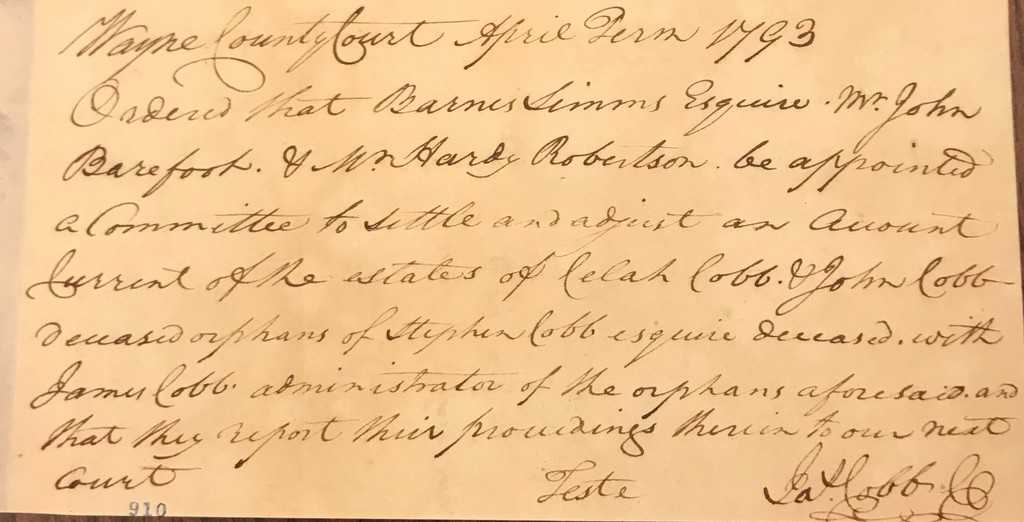 Wayne County Court April Term 1793
Ordered that Barnes Simms Esquire. Mr. John
Barefoot. & Mr. Hardy Robertson. be appointed
a Committee to settle and adjust an account
Current of the estates of Celah Cobb. & John Cobb
deceased orphans of Stephen Cobb esquire deceased. with
James Cobb. administrator of the orphans aforesaid. and
that they report their proceedings therein to our next
Court Teste Jas. Cobb CC
910